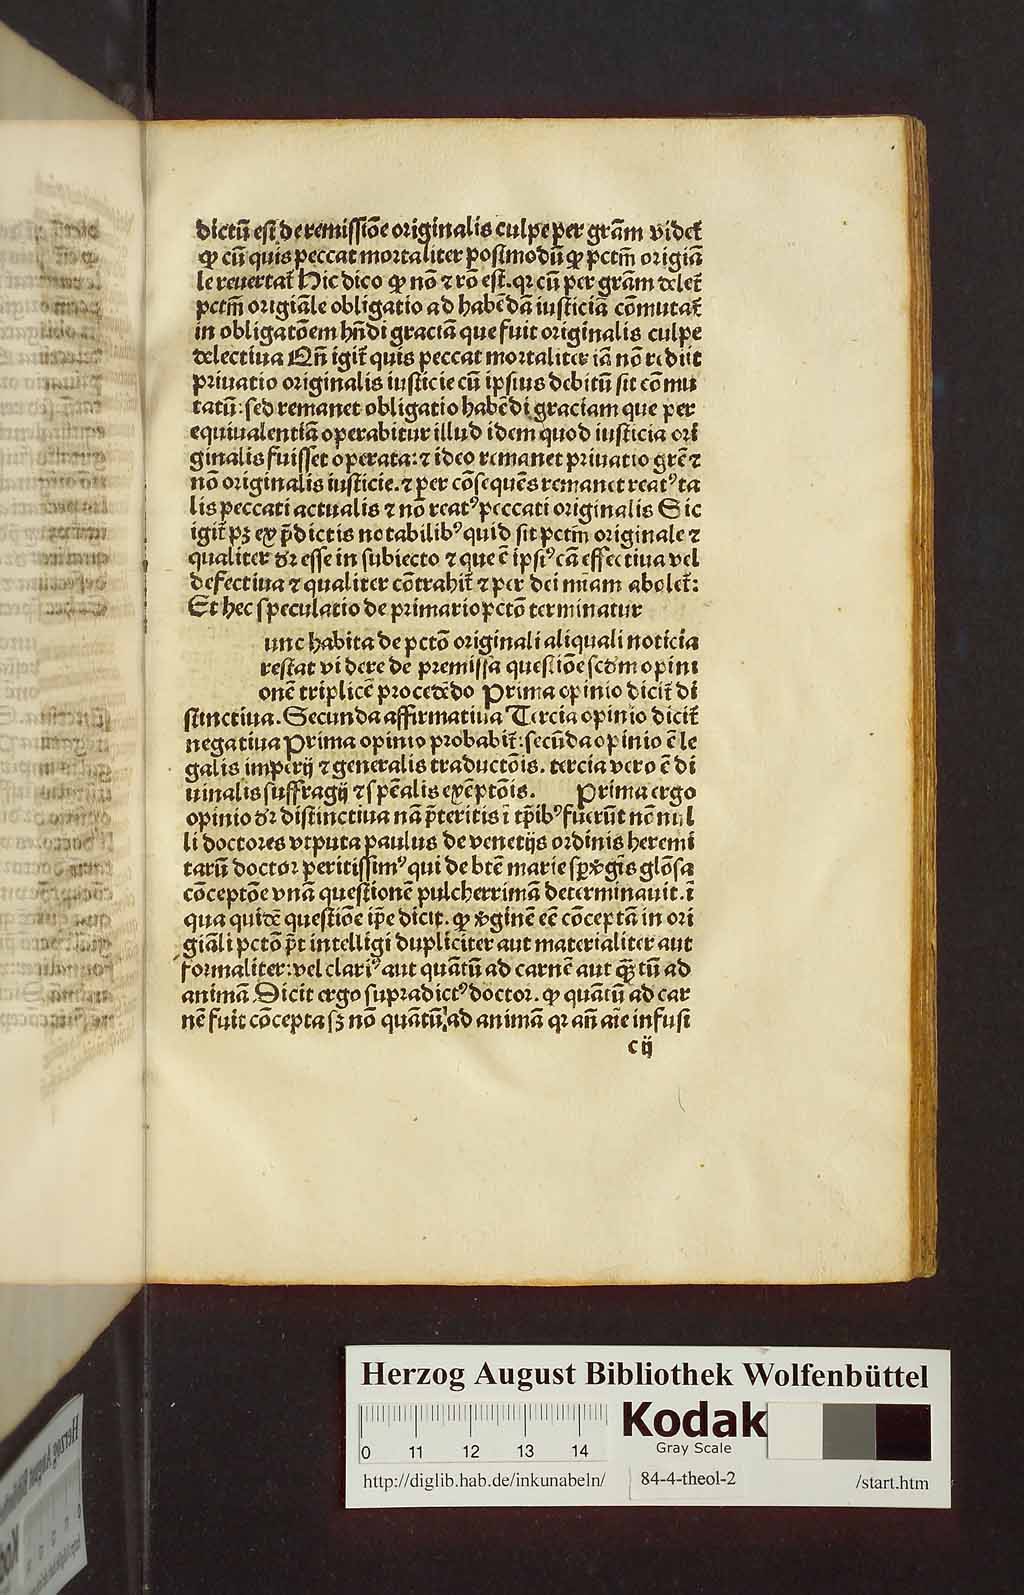 dictū est de remissiōe originalis culpe per grām videt᷑
ꝙ cū quis peccat mortaliter postmodū ꝙ pctm̄ origiā
le reuertat᷑ Hic dico ꝙ nō ⁊ rō est. qꝛ cū per grām delet᷑
pctm̄ origiāle obligatio ad habēdā iusticiā cōmutat᷑
in obligatōem hn̄di graciā que fuit originalis culpe
delectiua Qn̄ igit᷑ quis peccat mortaliter iā nō rediit
priuatio originalis iusticie cū ipsius debitū sit cō mu
tatū: sed remanet obligatio habēdi graciam que per
equiualentiā operabitur illud idem quod iusticia ori
ginalis fuisset operata: ⁊ ideo remanet priuatio grē ⁊
nō originalis iusticie. ⁊ per cōsequēs remanet reatꝰ ta
lis peccati actualis ⁊ nō reatꝰ peccati originalis Sic
igit᷑ pꝫ ex p̄dictis notabilibꝰ quid sit pctm̄ originale ⁊
qualiter dr̄ esse in subiecto ⁊ que ē ipsiꝰ cā effectiua vel
defectiua ⁊ qualiter cōtrahit᷑ ⁊ per dei miam abolet᷑:
Et hec speculatio de primario pctō terminatur
unc habita de pctō originali aliquali noticia
restat videre de premissa questiōe scd̄m opini
onē triplicē procedēdo Prima opinio dicit᷑ di
stinctiua. Secunda affirmatiua Tercia opinio dicit᷑
negatiua Prima opinio probabit᷑: secūda opinio ē le
galis imperij ⁊ generalis traductōis. tercia vero ē di
uinalis suffragij ⁊ spēalis exēptōis. Prima ergo
opinio dr̄ distinctiua nā p̄teritis ī tp̄ibꝰ fuerūt nō nul
li doctores vtputa paulus de venetijs ordinis heremi
tarū doctor peritissimꝰ qui de btē marie sp̱ v̄gīs glōsa
cōceptōe vnā questionē pulcherrimā determinauit. ī
qua quidē questiōe ip̄e dicit. ꝙ v̄ginē eē cōceptā in ori
giāli pctō p̄t intelligi dupliciter aut materialiter aut
formaliter: vel clariꝰ aut quātū ad carnē aut qͣ̄tū ad
animā Dicit ergo supradictꝰ doctor. ꝙ quātū ad car
nē fuit cōcepta sꝫ nō quātū ad animā qꝛ an̄ aīe infusi
c ij
Herzog August Bibliothek Wolfenbüttel
0 11 12 13 14
Kodak
Gray Scale
http://diglib.hab.de/inkunabeln/ 84-4-theol-2 /start.htm